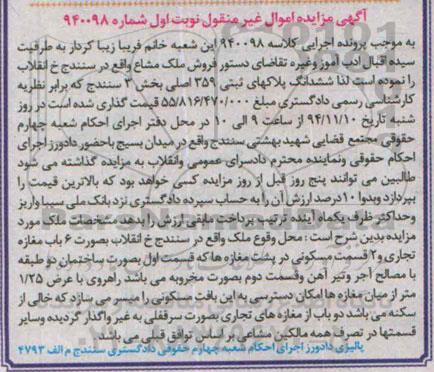 آگهی مزایده اموال غیر منقول نوبت اول شماره ۹۴۰۰۹۸
به موجب پرونده اجرایی کلاسه ۹۴۰۰۹۸ این شعبه خانم فریبا زیبا کردار به طرفیت
سیده اقبال ادب آموز وغیره تقاضای دستور فروش ملک مشاع واقع در سنندج خ انقلاب
را نموده است لذا ششدانگ پلاکهای ثبتی ۳۵۹ اصلی بخش ۳ سنندج که برابر نظریه
کارشناسی رسمی دادگستری مبلغ ۵۵/۸۱۶/۴۷۰/۰۰۰ قیمت گذاری شده است در روز
شنبه تاریخ ۹۴/۱۱/۱۰ از ساعت ۹ الی ۱۰ در محل دفتر اجرای احکام شعبه چهارم
حقوقی مجتمع قضایی شهید بهشتی سنندج واقع در میدان بسیج باحضور دادورز اجرای
احکام حقوقی ونماینده محترم دادسرای عمومی وانقلاب به مزایده گذاشته می شود
طالبین می توانند پنج روز قبل از روز مزایده کسی خواهد بود که بالاترین قیمت را
بپردازد وبدوا ۱۰درصد ارزش آن را به حساب سپرده دادگستری نزد بانک ملی سیبا واریز
وحداکثر ظرف یکماه آینده ترتیب پرداخت مابقی ارزش را بدهد مشخصات ملک مورد
مزایده بدین شرح است : محل وقوع ملک واقع در سنندج خ انقلاب بصورت ۶ باب مغازه
تجاری و۲ قسمت مسکونی در پشت مغازه ها که قسمت اول بصورت ساختمان دو طبقه
با مصالح آجر وتیر آهن وقسمت دوم بصورت مخروبه می باشد راهروی با عرض ۱/۲۵
متر از میان مغازه ها امکان دسترسی به این بافت مسکونی را میسر می سازد که خالی از
سکنه می باشد دو باب از مغازه های تجاری بصورت سرقفلی به غیر واگذار گردیده وسایر
قسمتها در تصرف همه مالکین مشاعی بر اساس توافق قبلی می باشد
پالیزی دادورز اجرای احکام شعبه چهارم حقوقی دادگستری سنندج م الف ۴۷۹۳